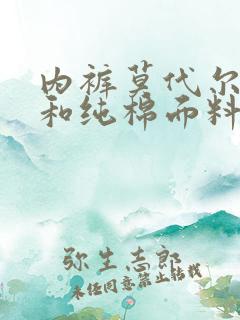 内裤莫代尔
和纯棉面料
弥生志郎
未经同意禁止转载